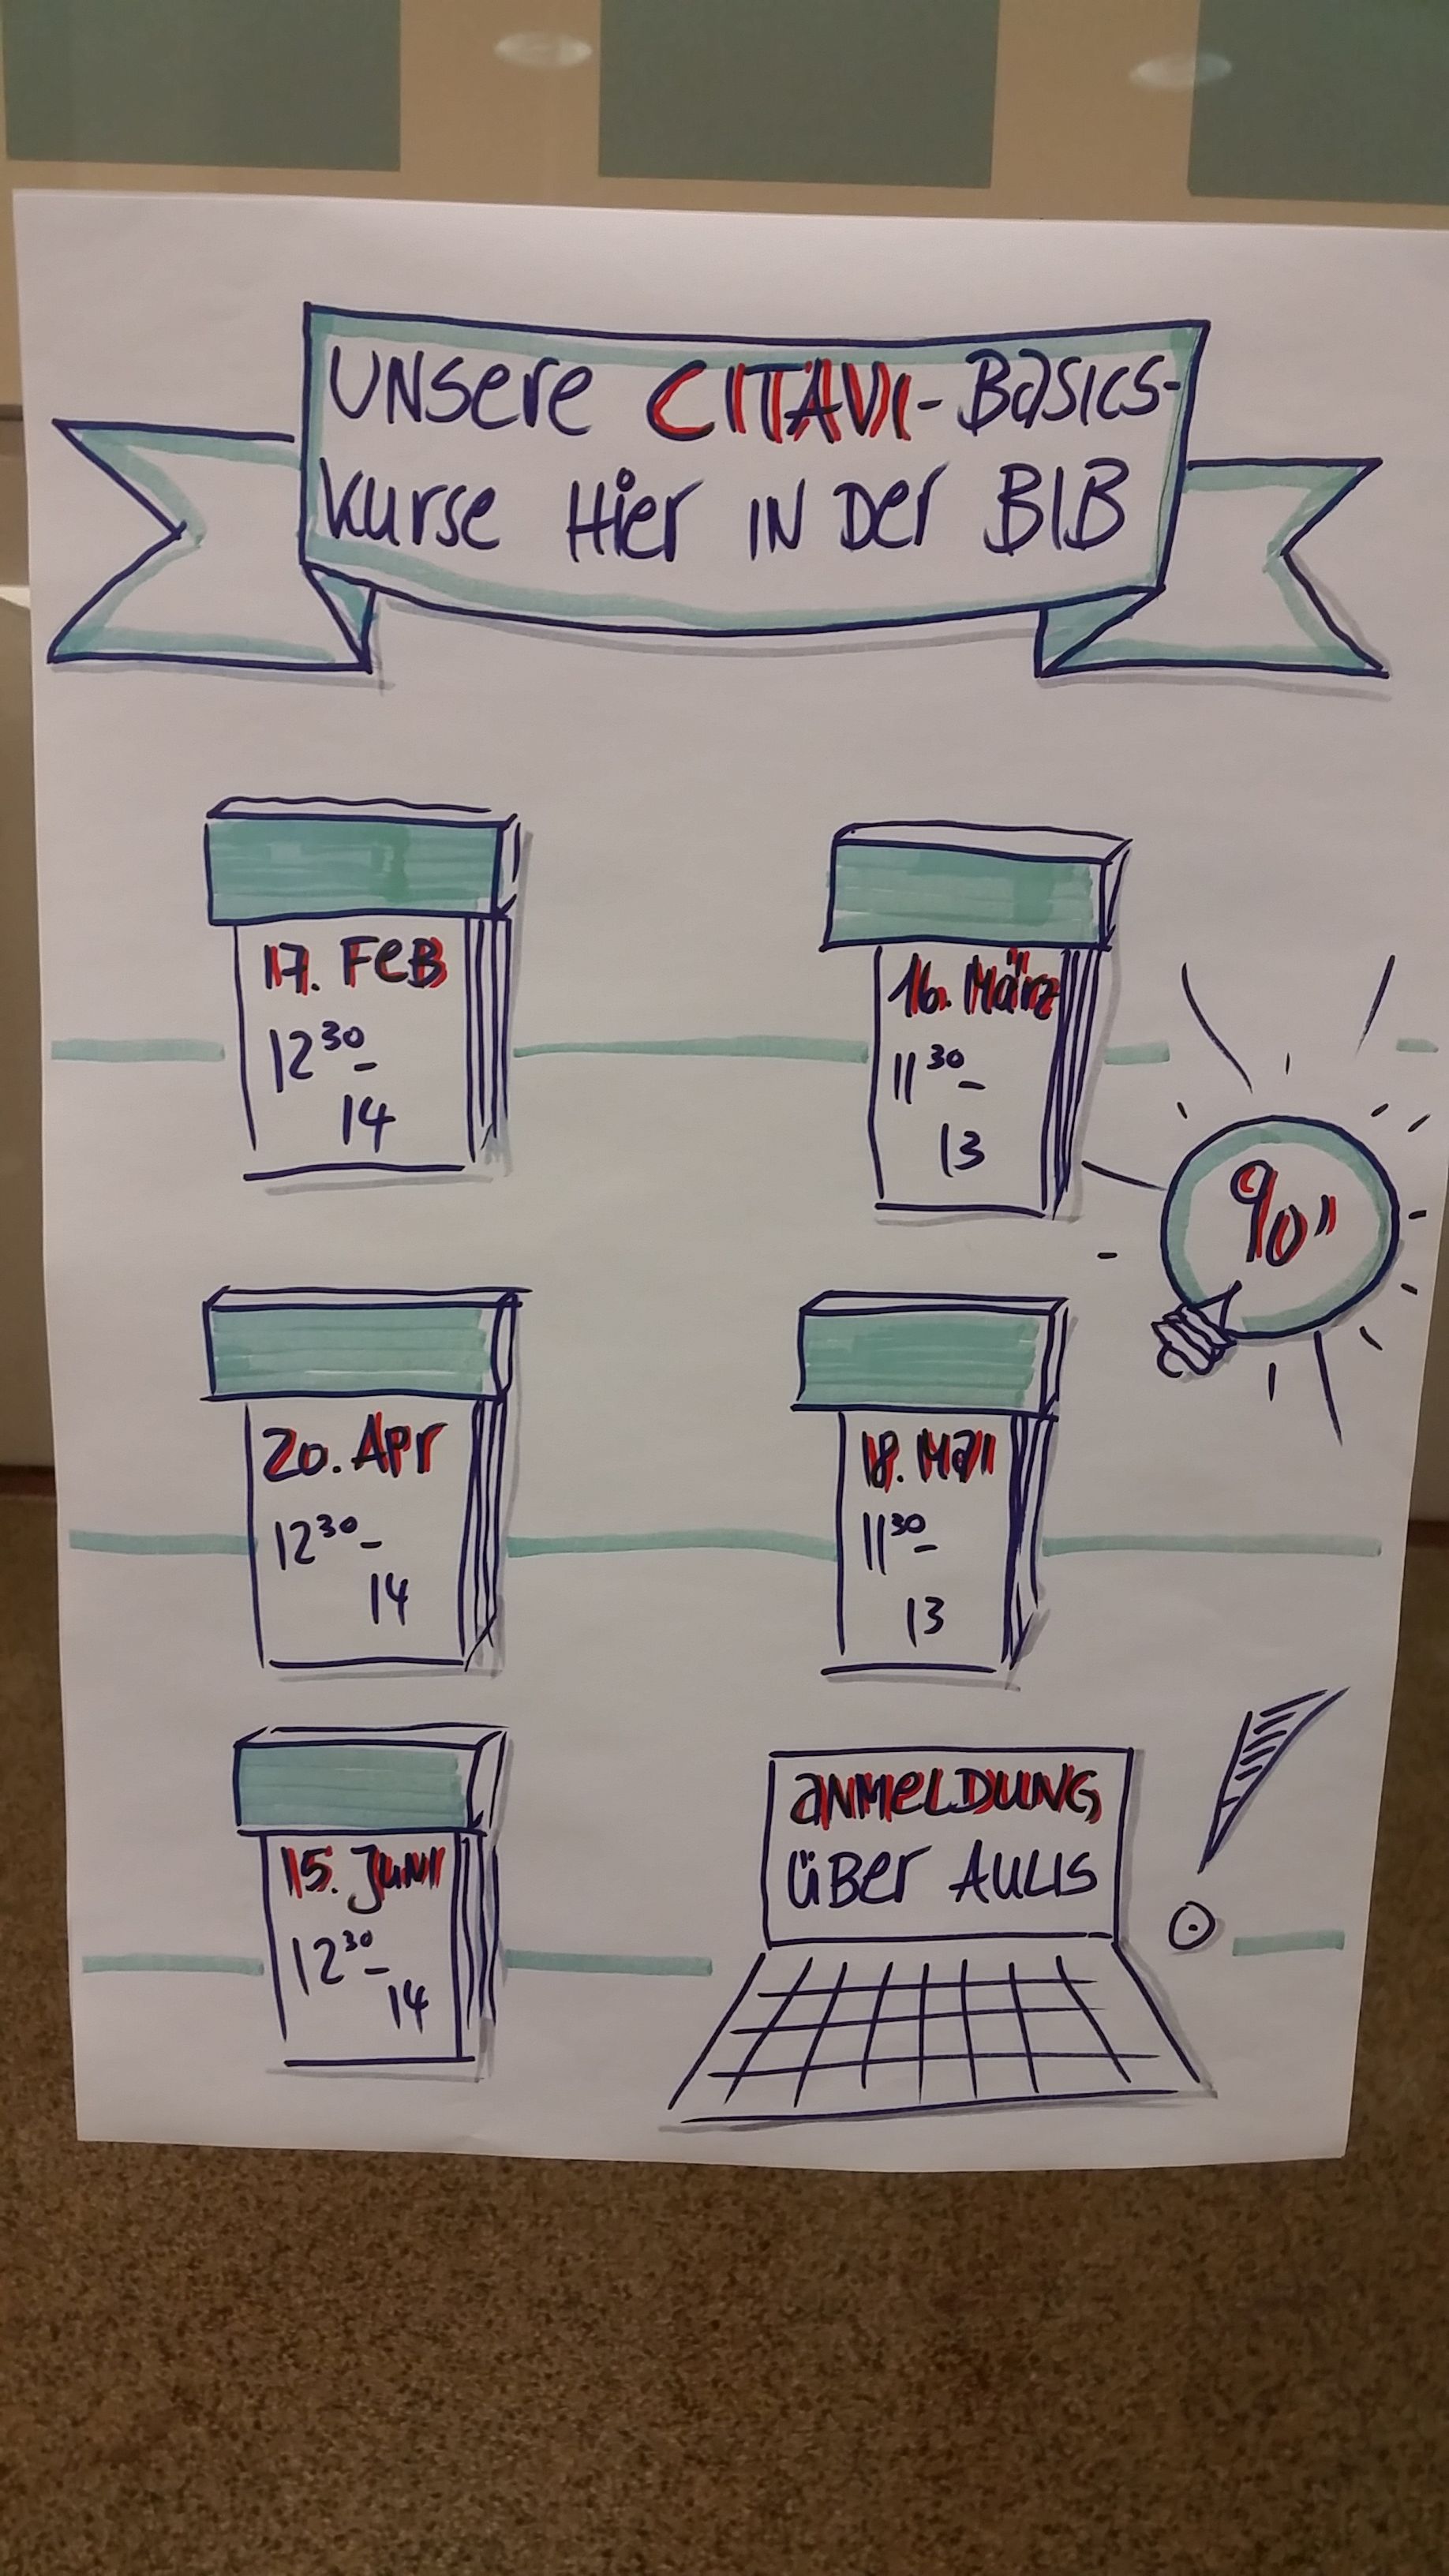 UNSERE CITAVI-BASICS-
KURSE HIER IN DER BIB
17. FEB
12³⁰-
14
16. März
11³⁰-
13
90"
20. Apr
12³⁰-
14
18. Mai
11³⁰-
13
15. Juni
12³⁰-
14
ANMELDUNG
ÜBER AULIS